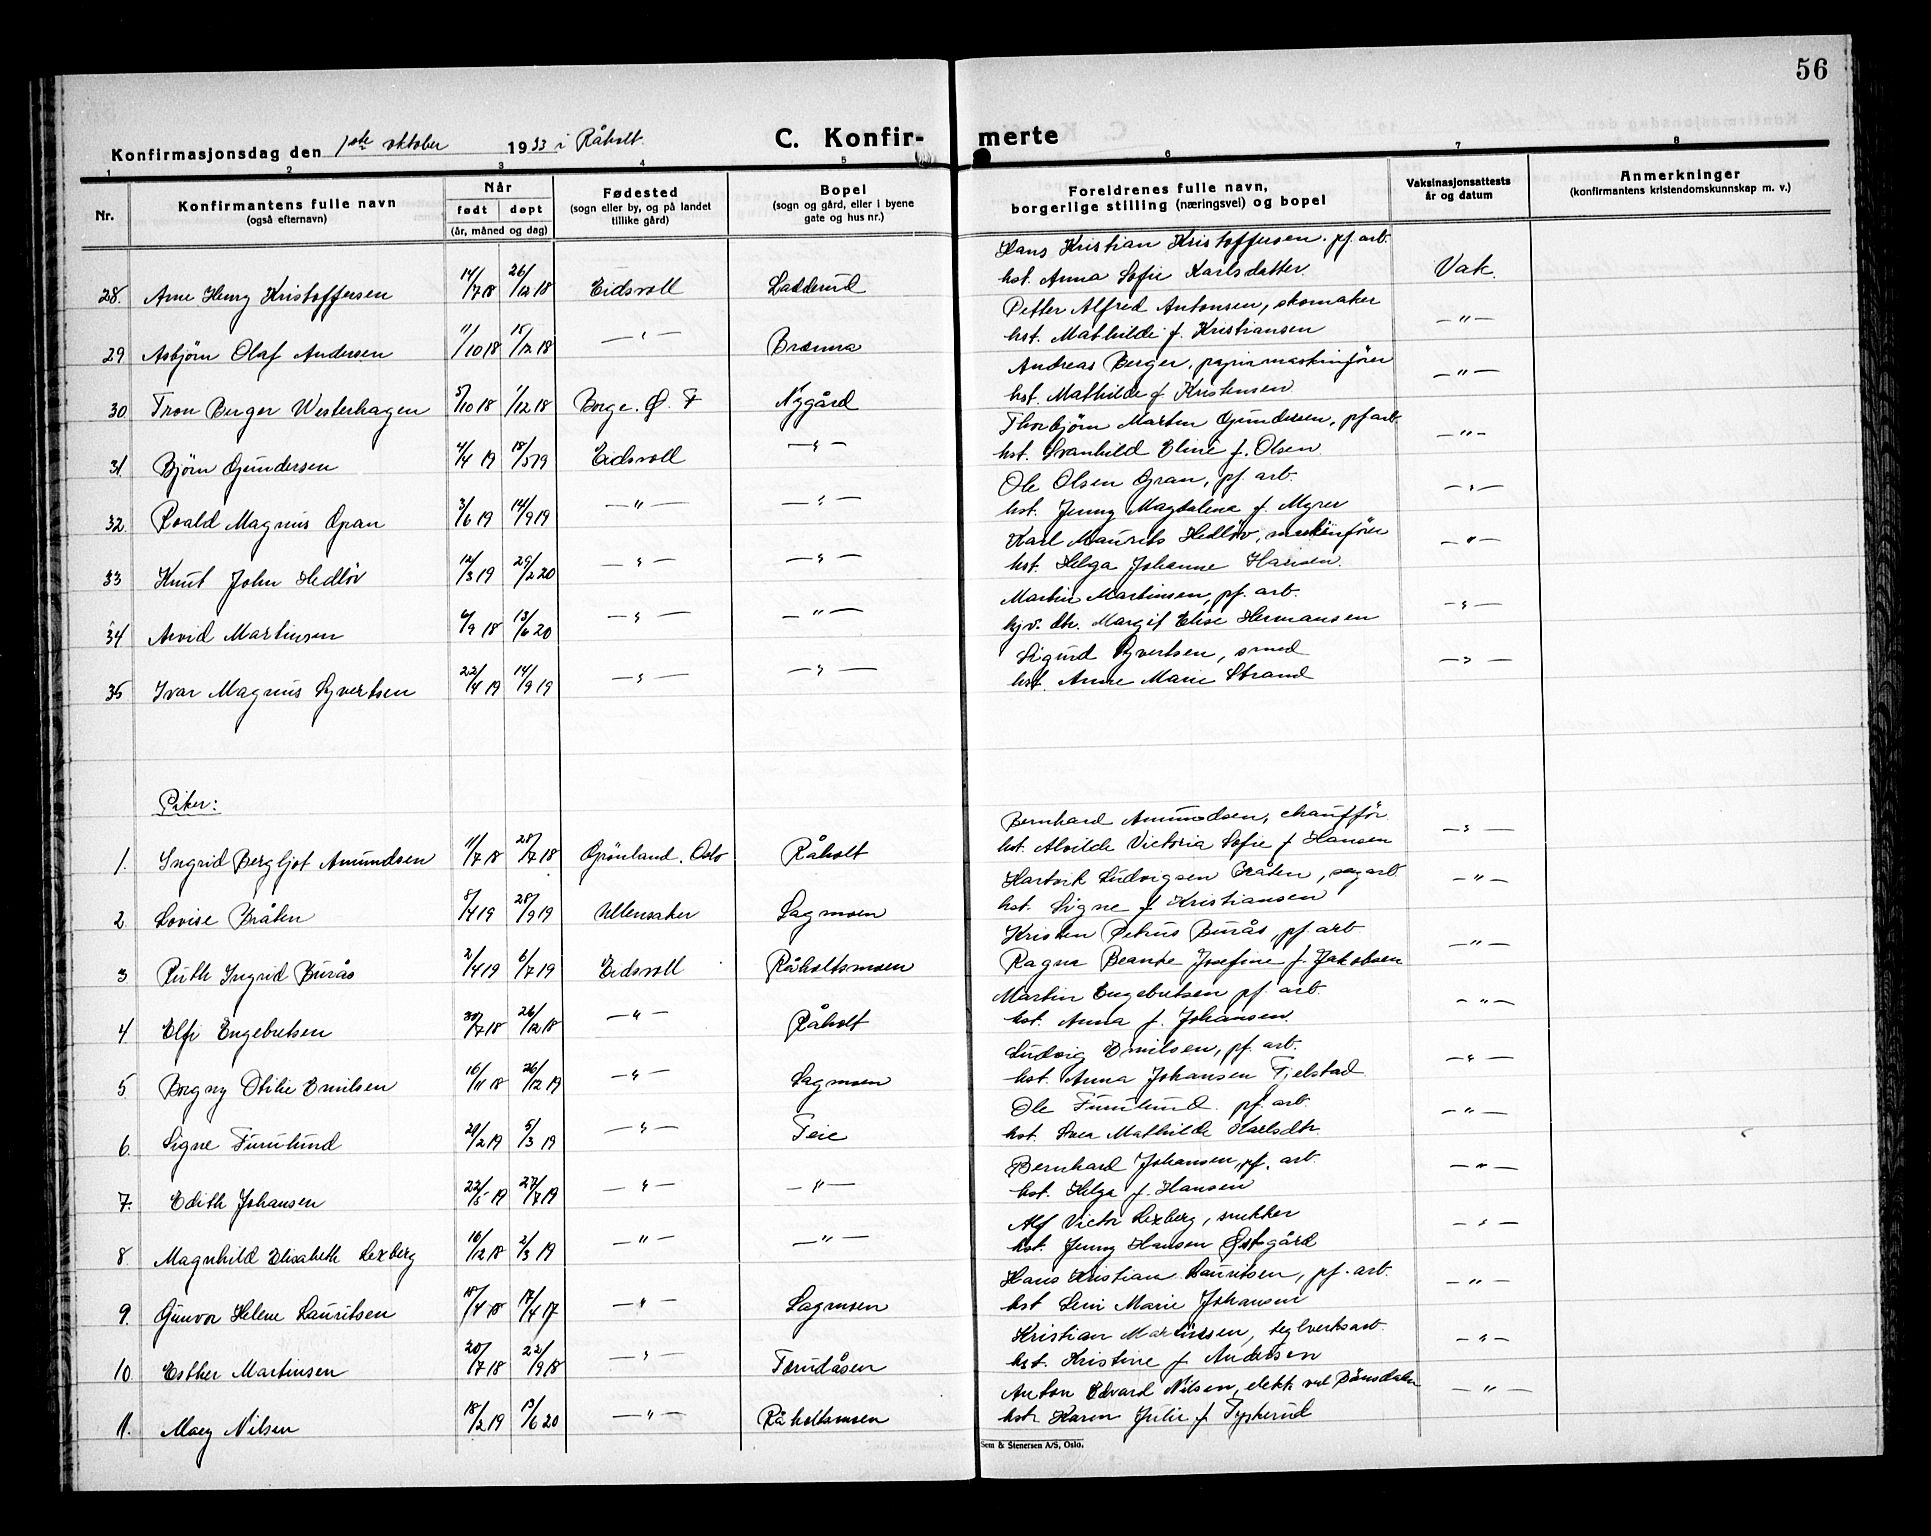 56
Konfirmasjonsdag den 1ste oktober 1933 i Råholt.
C. Konfirmerte
1 2 3 4 5 6 7 8
Nr.
Konfirmantens fulle navn
(også efternavn)
Når
født | døpt
(år, måned og dag)
Fødested
(sogn eller by, og på landet
tillike gård)
Bopel
(sogn og gård, eller i byene
gate og hus nr.)
Foreldrenes fulle navn,
borgerlige stilling (næringsvei) og bopel
Vaksinasjonsattests
år og datum
Anmerkninger
(konfirmantens kristendomskunnskap m. v.)
Hans Kristian Kristoffersen. pf. arb.
28. Arne Henry Kristoffersen 14/7 18 26/12 18 Eidsvoll Ladderud hst. Anna Sofie Karlsdatter Vak.
Petter Alfred Antonsen, skomaker
29 Asbjörn Olaf Andersen 11/10 18 15/12 18 —"— Brænna hst. Mathilde f. Kristiansen —"—
Andreas Berger, papirmaskinfører
30 Tron Berger Westerhagen 5/10 18 1/12 18 Borge. Ø. F Nygård hst. Mathilde f Kristensen —"—
Thorbjörn Martin Gundersen, pf arb.
31 Björn Gundersen 4/4 19 18/5 19 Eidsvoll —"— hst. Svanhild Eline f. Olsen —"—
Ole Olsen Gran, pf. arb.
32. Roald Magnus Gran 3/6 19 14/9 19 —"— —"— hst. Jenny Magdalena f. Myrer —"—
Karl Maurits Hedlöv, maskinförer
33 Knut John Hedlöv 12/3 19 29/2 20 —"— —"— hst. Helga Johanne Hansen. —"—
Martin Martinsen, pf. arb.
34 Arvid Martinsen 6/9 18 13/6 20 —"— —"— hjv. dtr. Margit Elise Hermansen —"—
Sigurd Syvertsen, smed
35 Ivar Magnus Syvertsen 22/4 19 14/9 19 —"— —"— hst. Anne Marie Strand —"—
Piker:
Bernhard Amundsen, chaufför
1. Ingrid Bergljot Amundsen 11/7 18 28/7 18 Grönland. Oslo Råholt hst. Alvilde Victoria Sofie f Hansen —"—
Hartvik Ludvigsen Bråten, sagarb
2 Lovise Bråten 5/4 19 28/9 19 Ullensaker Sagmoen hst. Signe f Kristiansen —"—
Kristen Petrus Burås, pf arb
3 Ruth Ingrid Burås 2/4 19 6/7 19 Eidsvoll Råholtsmoen Ragna Beante Josefine f. Jakobsen —"—
Martin Engebretsen pf. arb.
4 Elfi Engebretsen 30/7 18 26/12 18 —"— Råholt hst. Anna f. Johansen. —"—
Ludvig Emilsen, pf. arb.
5 Borgny Otilie Emilsen 16/11 18 26/12 19 —"— Sagmoen hst. Anna Johansen Fjelstad —"—
Ole Furulund. pf. arb.
6. Signe Furulund 24/2 19 5/3 19 —"— Teie hst. Svea Mathilde Karlsdtr. —"—
Bernhard Johansen, pf. arb.
7. Edith Johansen 22/5 19 27/7 19 —"— —"— hst. Helga f. Hansen —"—
Alf Victor Lexberg, snekker
8. Magnhild Elisabeth Lexberg 16/12 18 2/3 19 —"— —"— hst. Jenny Hansen Østsgård —"—
Hans Kristian Lauritsen, pf. arb.
9. Gunvor Helene Lauritsen 18/4 18 17/4 17 —"— Sagmoen hst Leni Marie Johansen —"—
Kristian Martinsen, teglverksarb.
10 Esther Martinsen 20/7 18 22/9 18 —"— Tærudåsen hst. Kristine f Andersen —"—
Anton Edvard Nilsen, elekt. ved Bönsdalen
11. Mary Nilsen 18/2 19 13/6 20 —"— Råholtsmoen hst. Karen Julie f Tyskerud —"—
Sem & Stenersen A/S, Oslo.